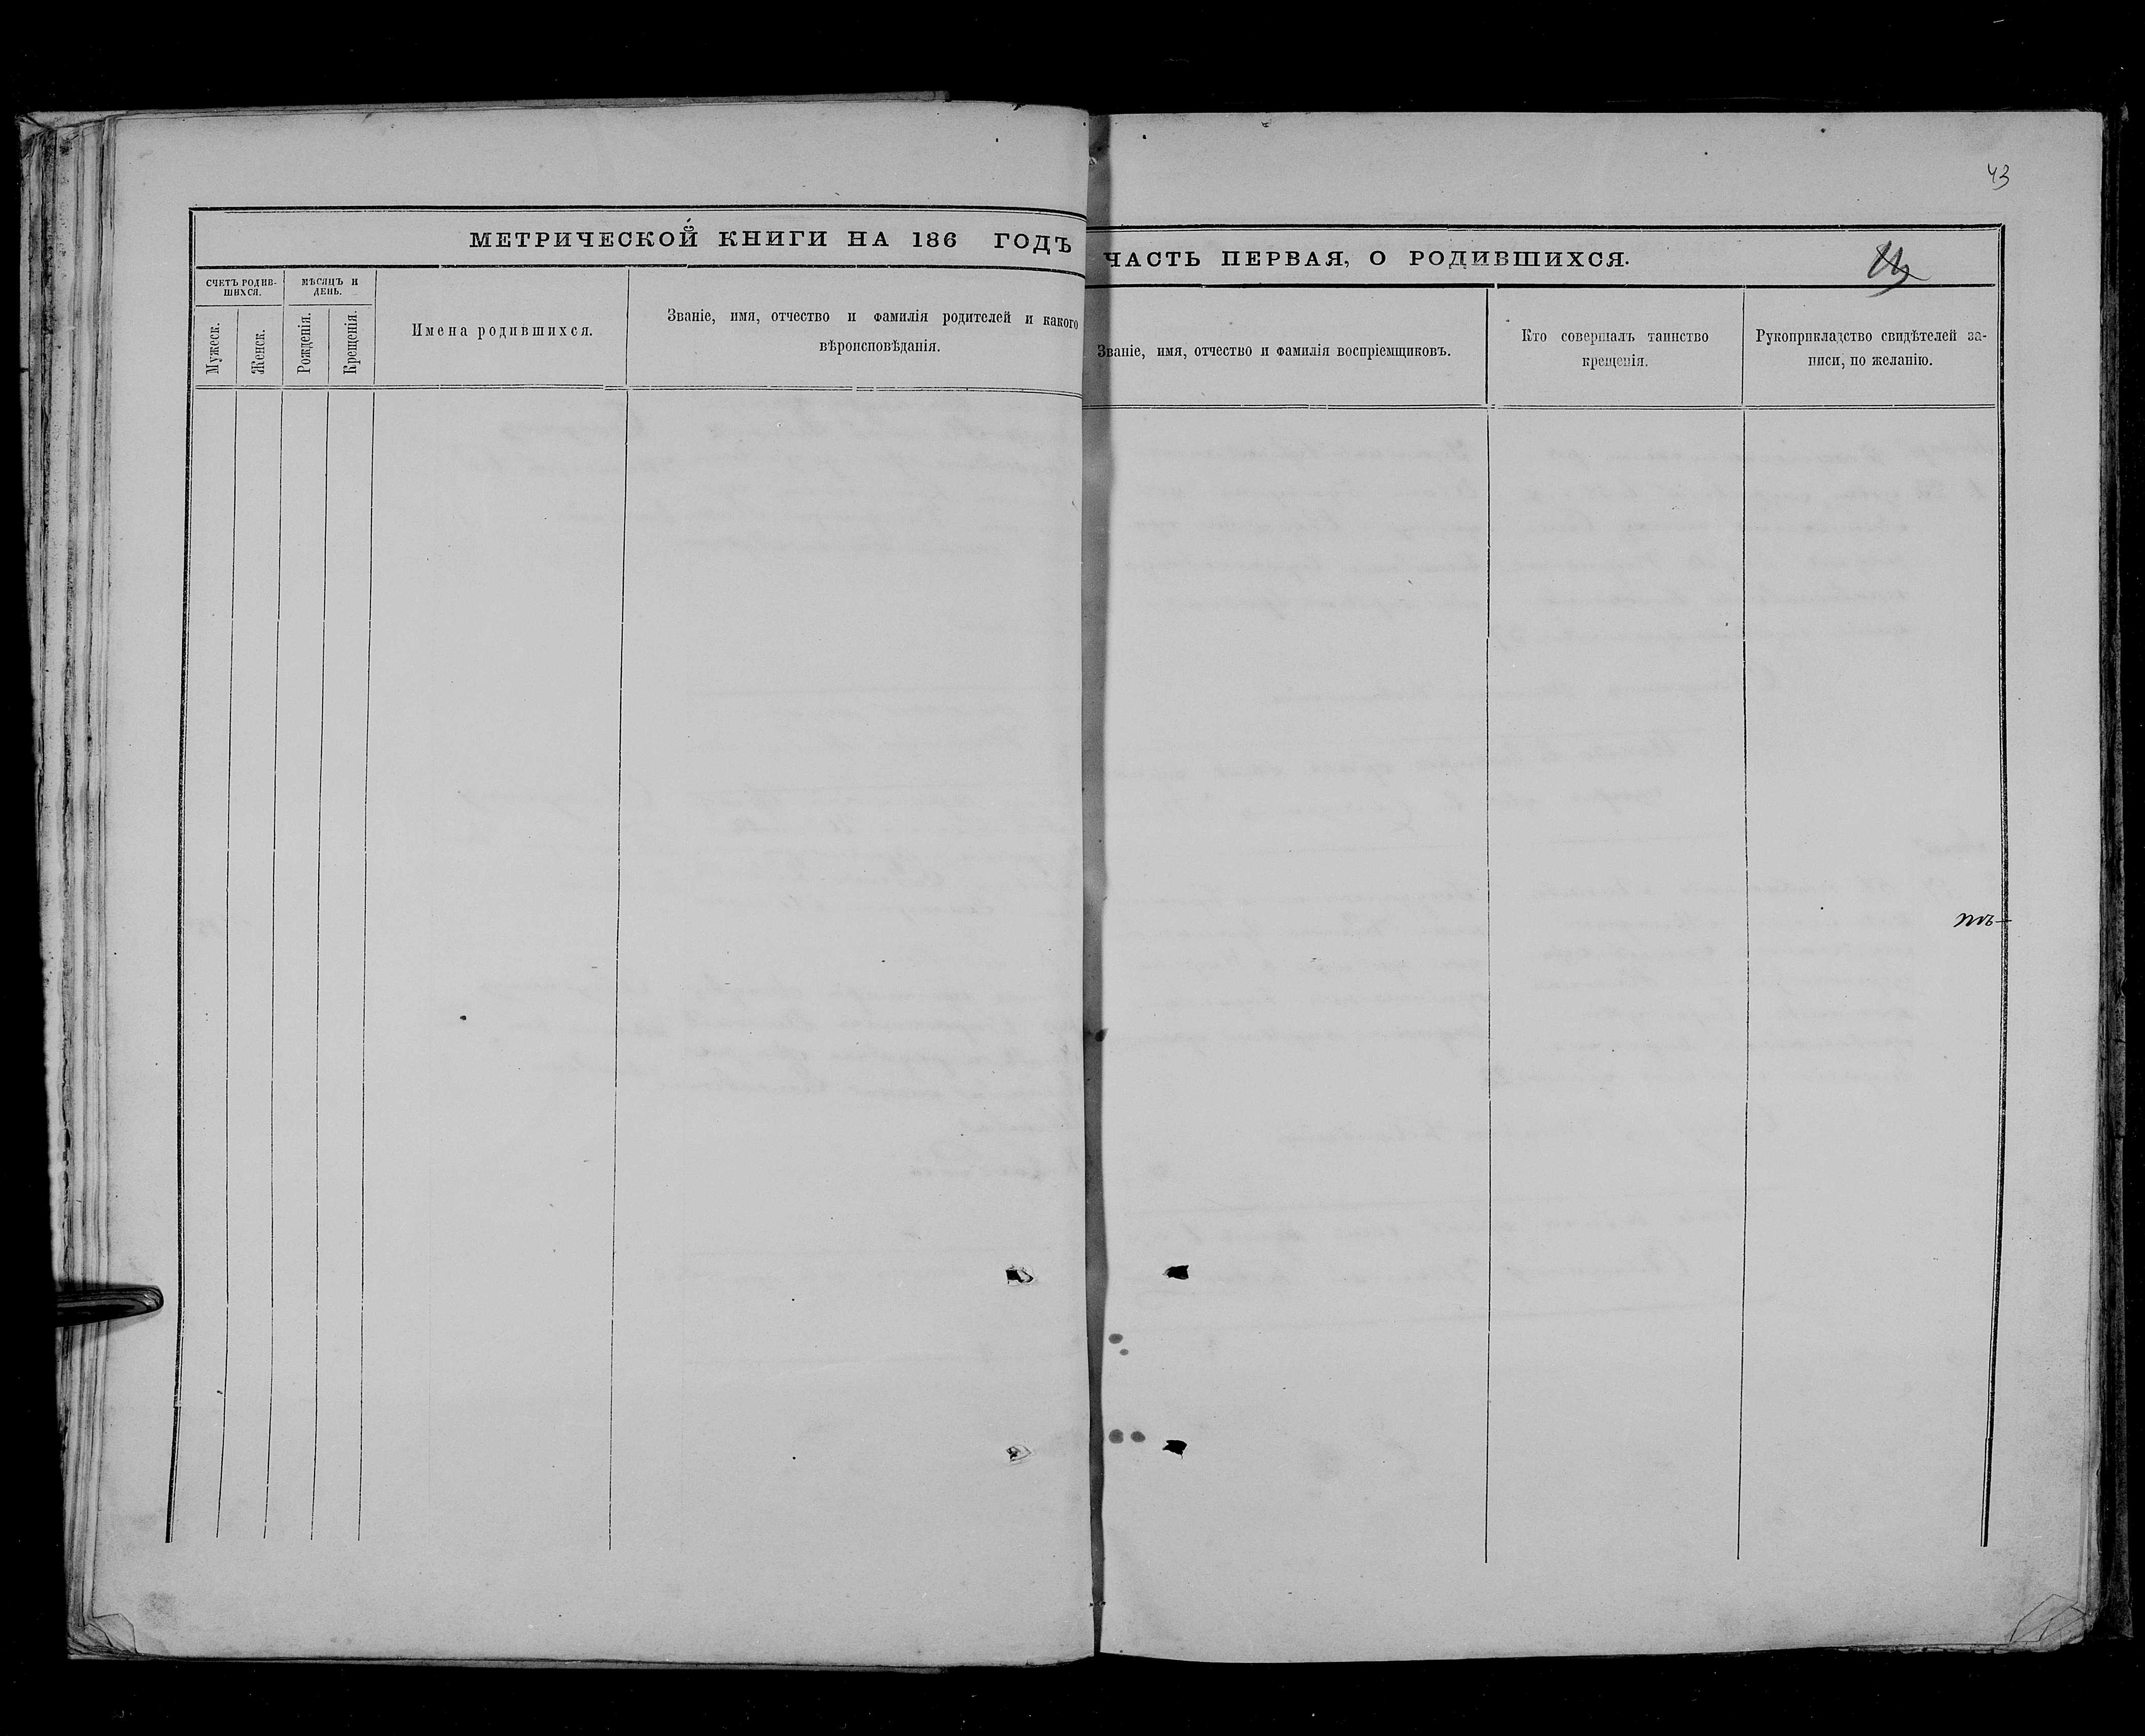 43
МЕТРИЧЕСКОЙ КНИГИ НА 186 ГОДЪ
ЧАСТЬ ПЕРВАЯ, О РОДИВШИХСЯ.
СЧЕТЪ РОДИВ-
ШИХСЯ.
МѢСЯЦЪ И
ДЕНЬ.
Мужеск.
Женск.
Рожденія.
Крещенія.
Имена родившихся.
Званіе, имя, отчество и фамилія родителей и какого
вѣроисповѣданія.
Званіе, имя, отчество и фамилія воспріемщиковъ.
Кто совершалъ таинство
крещенія.
Рукоприкладство свидѣтелей за-
писи, по желанію.